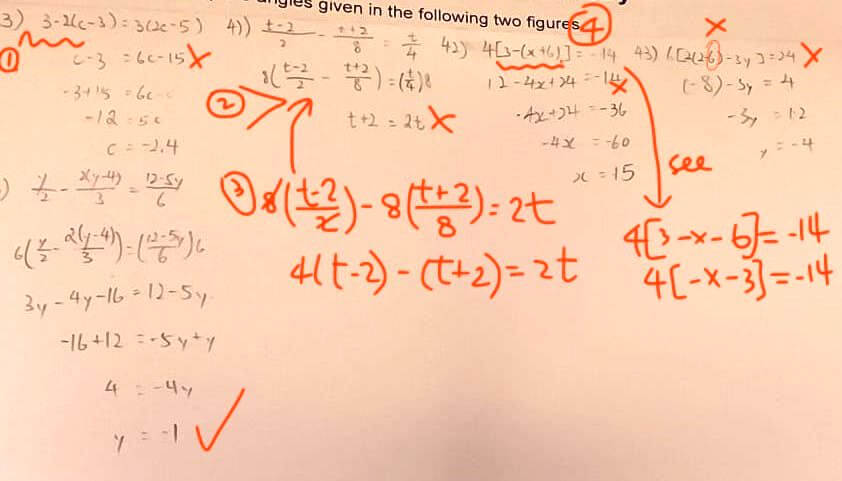 angles given in the following two figures
3) 3-2(c-3) = 3(2c-5)
①
c-3 = 6c-15 ×
-3+15 = 6c-c
-12 = 5c
c = -2.4
4)) t-2/2 - t+2/8 = t/4
8(t-2/2 - t+2/8) = (t/4)8
②
t+2 = 2t ×
③ 8(t-2/2) - 8(t+2/8) = 2t
4(t-2) - (t+2) = 2t
④
42) 4[3-(x+6)] = -14
12-4x+24 = -14 ×
-4x+24 = -36
-4x = -60
x = 15
see
4[3-x-6] = -14
4[-x-3] = -14
×
43) 6[2(2-6)-3y] = 24 ×
(-8)-3y = 4
-3y = 12
y = -4
) y/2 - 2(y-4)/3 = 12-5y/6
6(y/2 - 2(y-4)/3) = (12-5y/6)6
3y-4y-16 = 12-5y
-16+12 = -5y+y
4 = -4y
y = -1 ✓